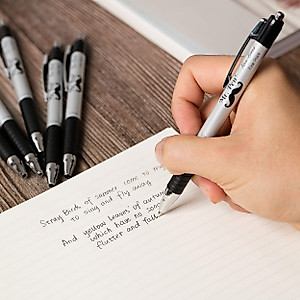 Mr. Pen
Stray Birds of summer come to my
to sing and fly away
And yellow leaves of autumn
which have no song
flutter and fall